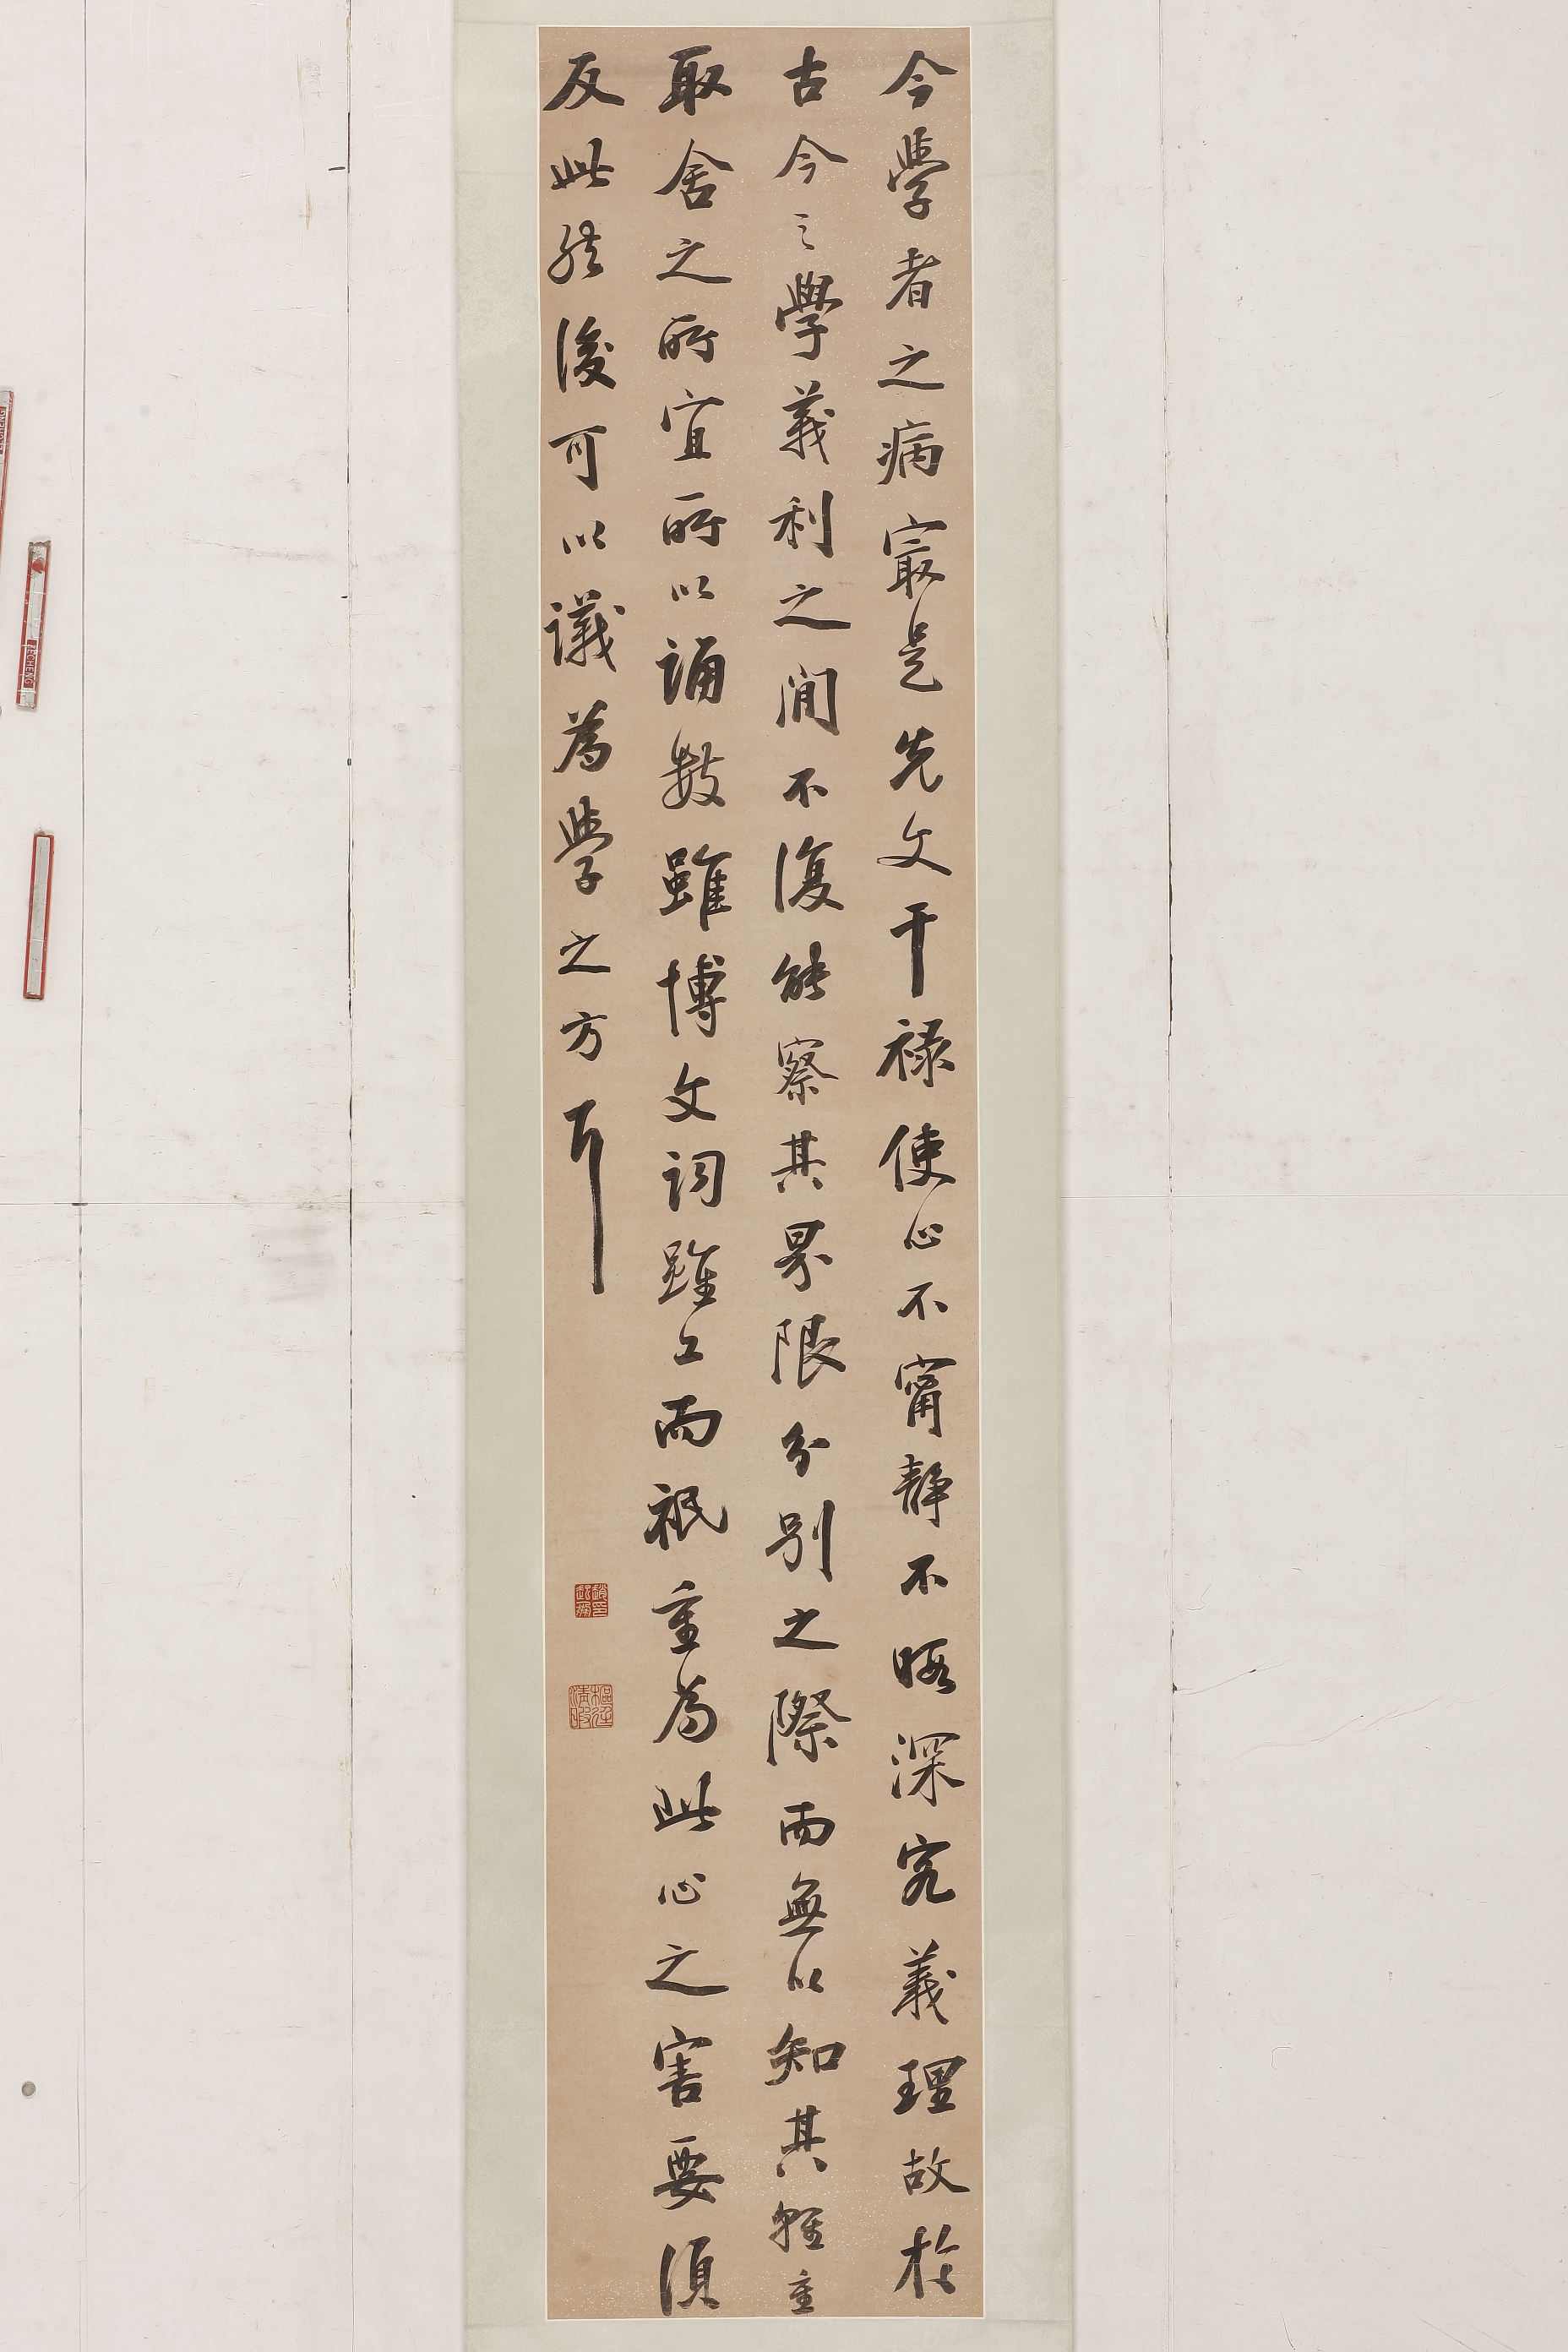 今學者之病寂是先文干祿使心不甯靜不暇深究義理故於
古今之學義利之間不復能察其界限分別之際而無以知其輕重
取舍之所宜所以誦數雖博文詞雖工而祇重為此心之害要須
反此然後可以議為學之方耳